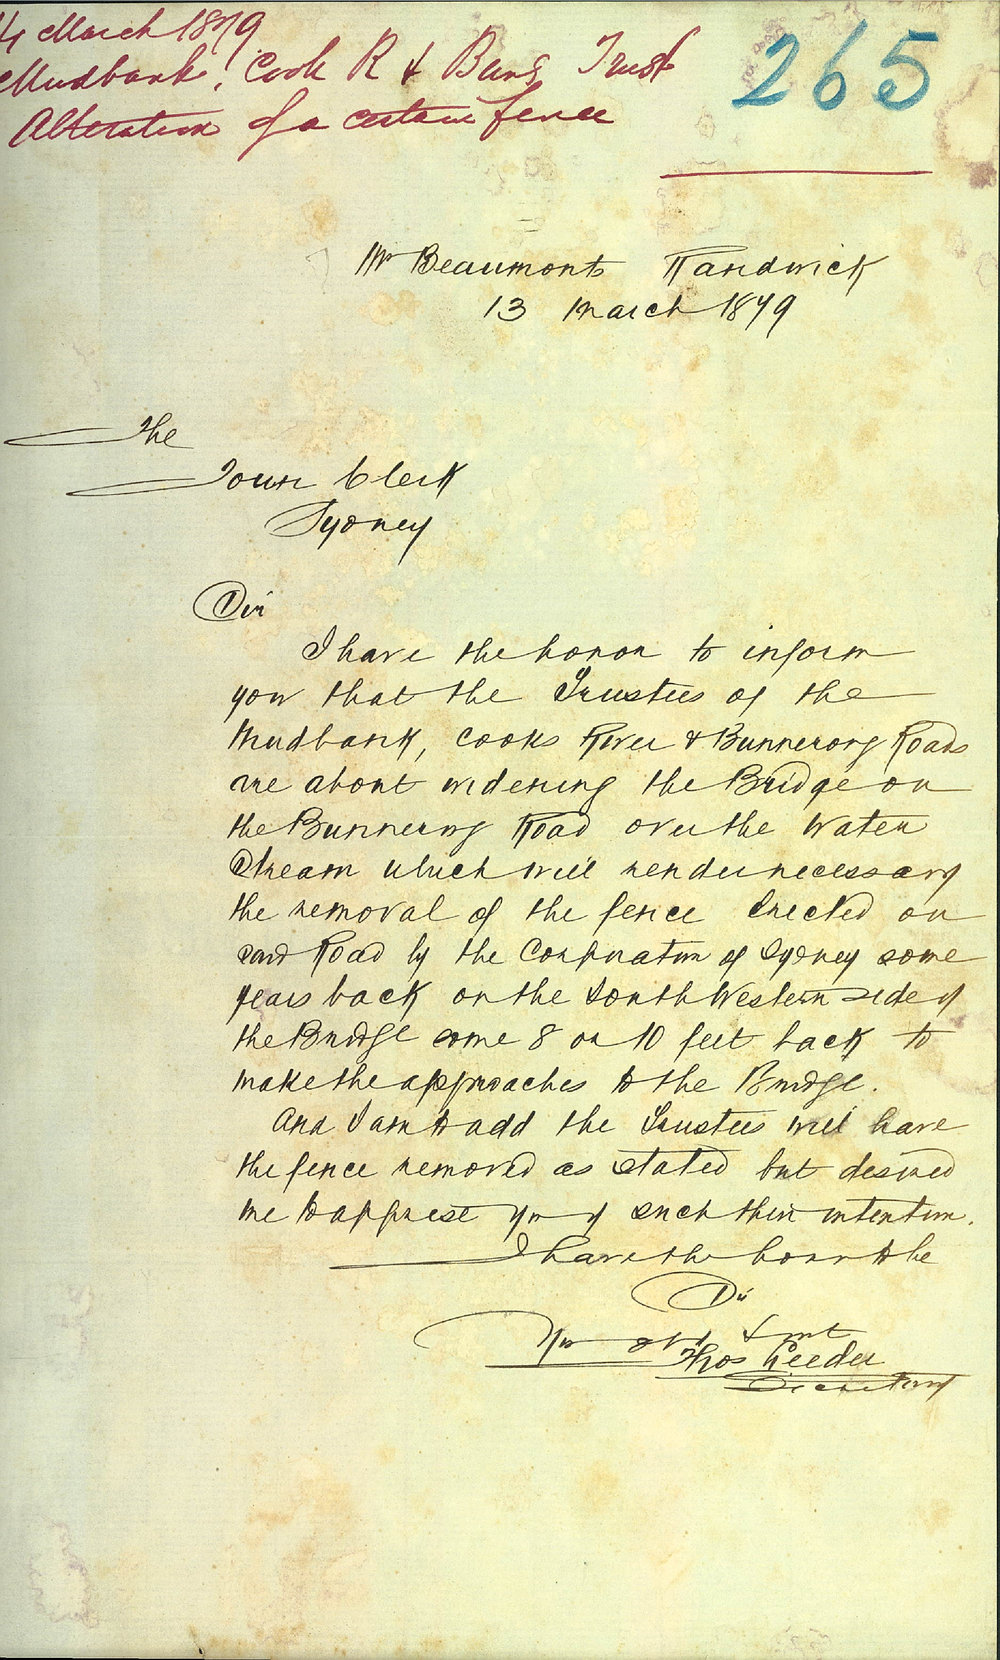 14 March 1879
Mudbank, Cook R & Bung Trust
Alteration of a certain fence
265
Mr Beaumonts Randwick
13 March 1879
The
Town Clerk
Sydney
Sir
I have the honor to inform
you that the Trustees of the
Mudbank, Cooks River & Bunnerong Roads
are about widening the Bridge on
the Bunnerong Road over the Water
Stream which will render necessary
the removal of the fence erected on
said Road by the Corporation of Sydney some
years back on the South Western side of
the Bridge some 8 or 10 feet back to
make the approaches to the Bridge.
And I am to add the Trustees will have
the fence removed as stated but desired
me to apprise you of such their intention.
I have the honor to be
Sir
Your obt
Thos
Secretary